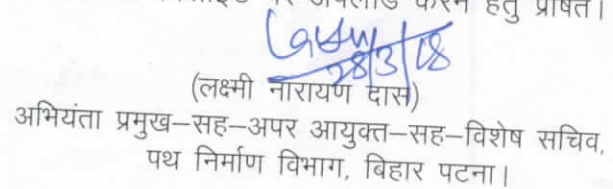 पर अपलोड करने हेतु प्रेषित।
28/3/18
(लक्ष्मी नारायण दास)
अभियंता प्रमुख–सह–अपर आयुक्त–सह–विशेष सचिव,
पथ निर्माण विभाग, बिहार पटना।